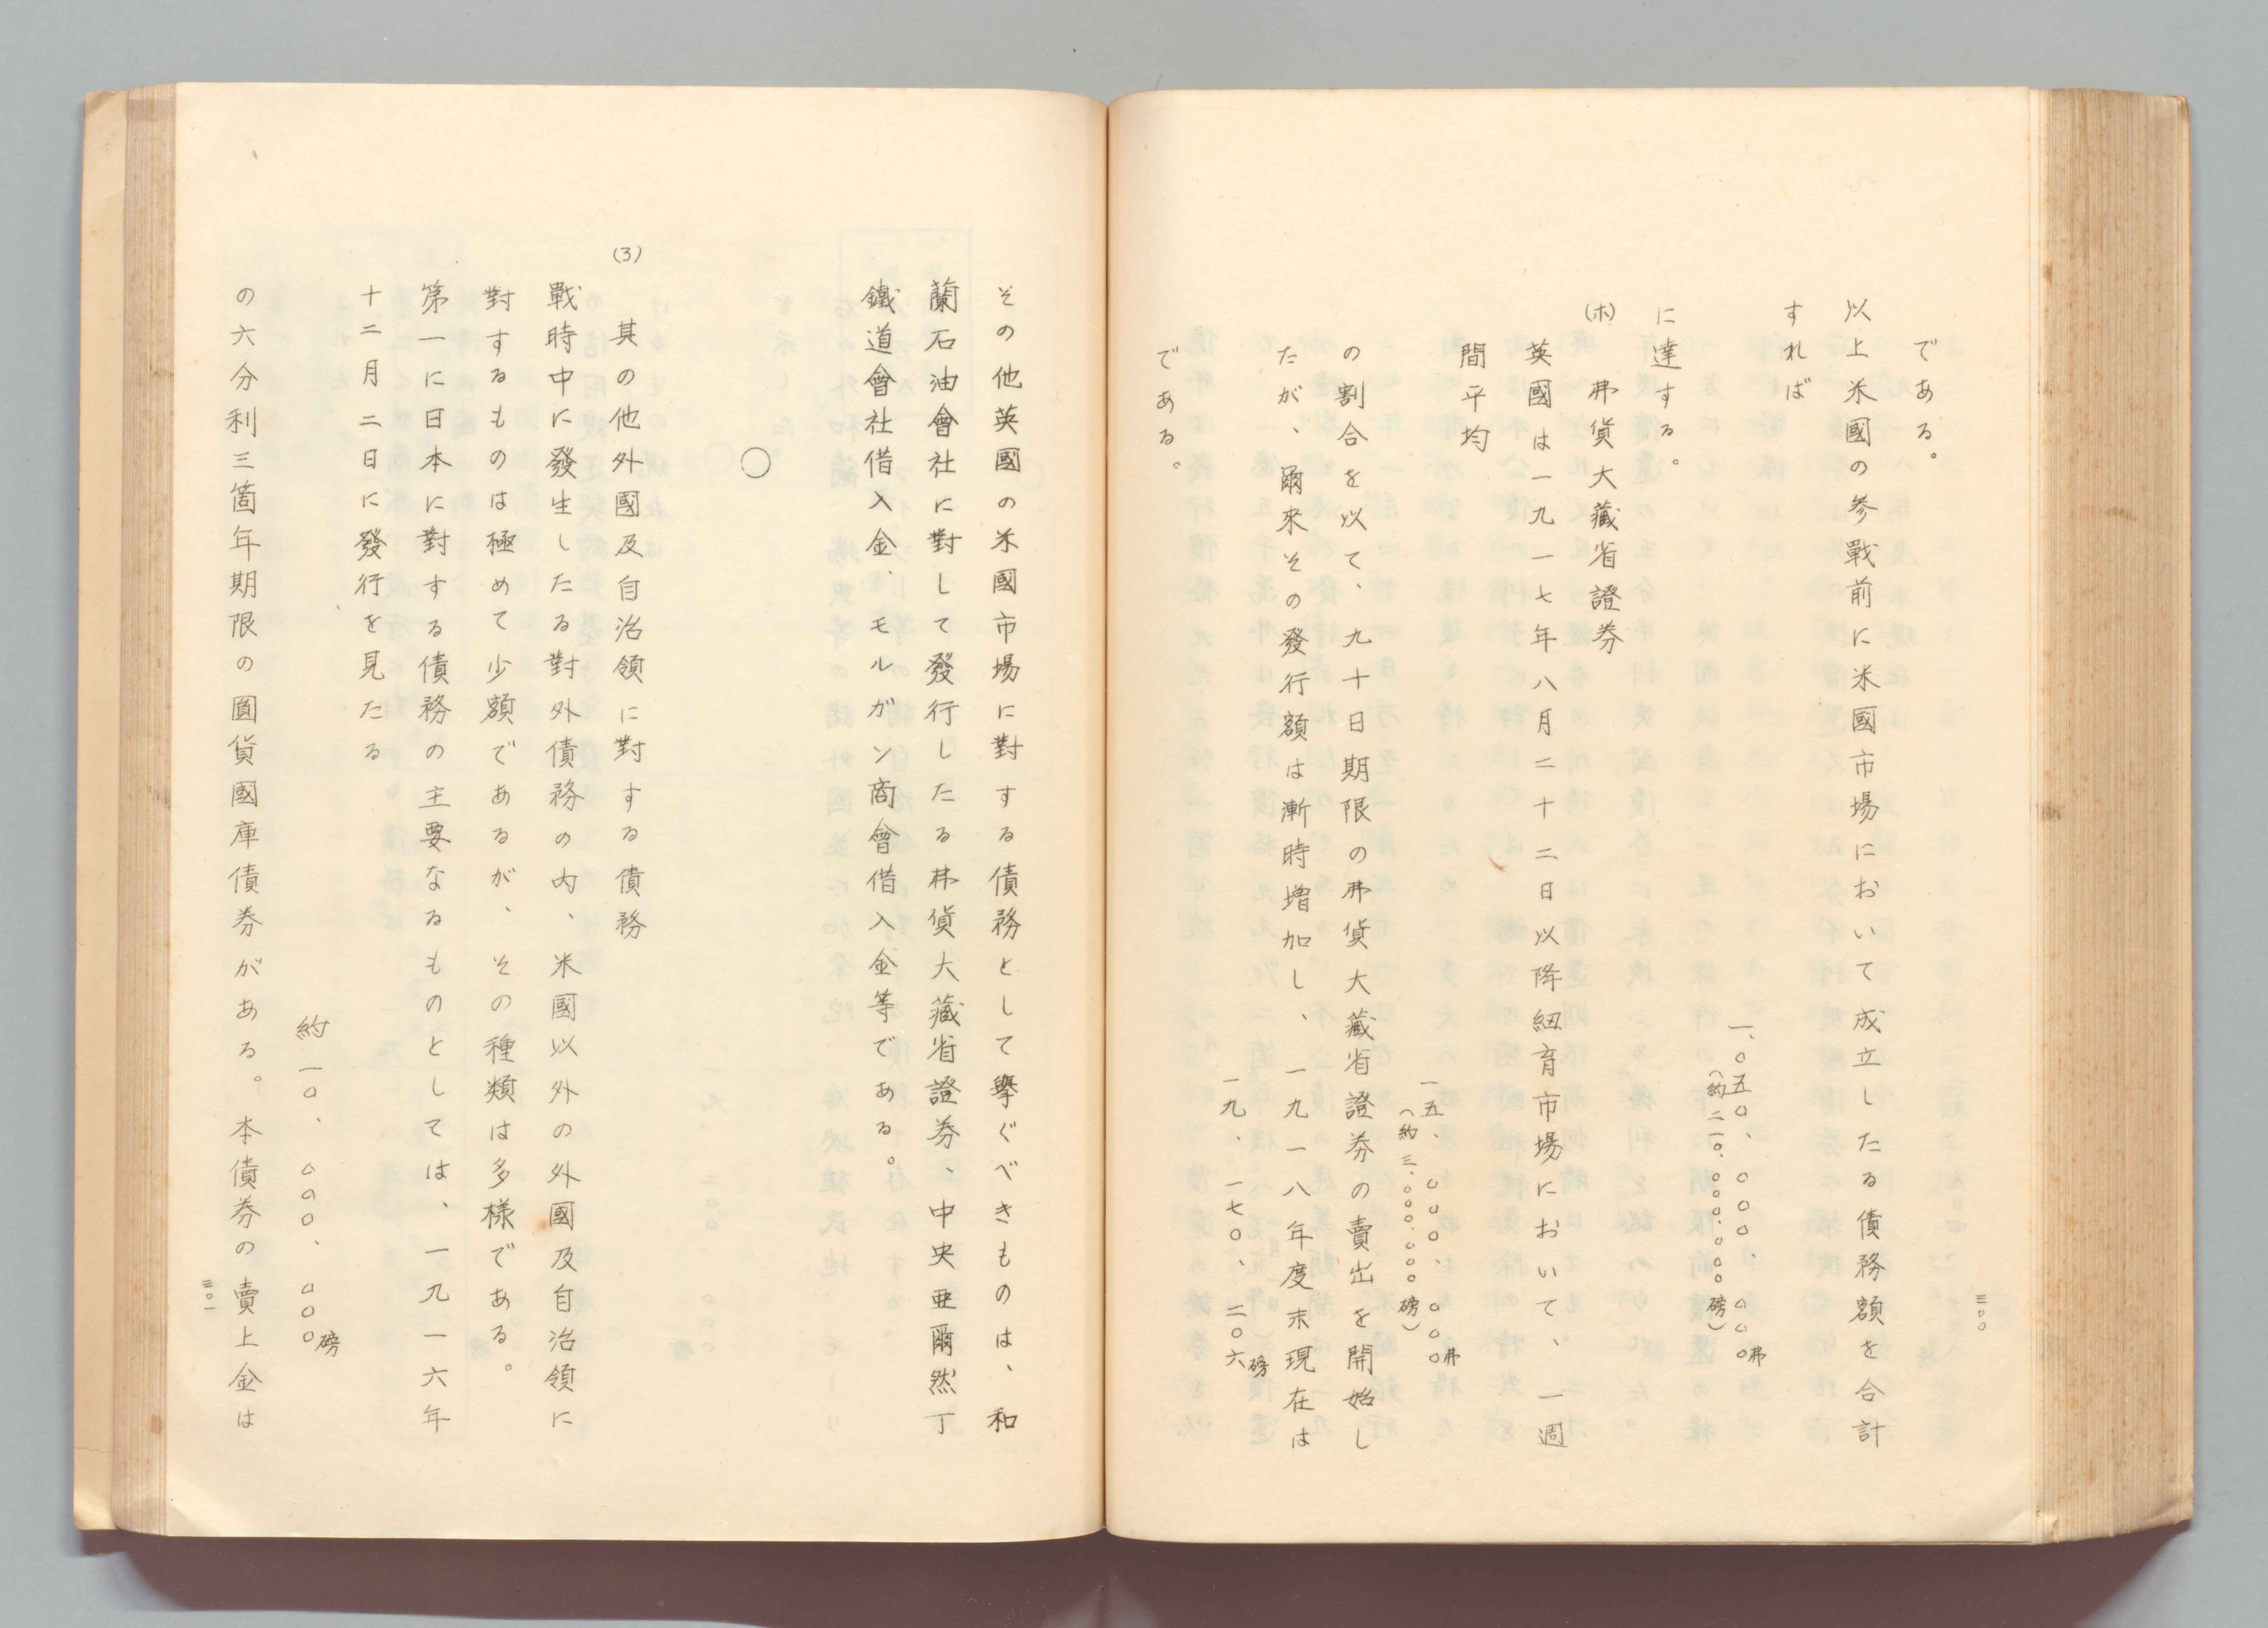 三〇〇
である。
以上米國の参戰前に米國市場において成立したる債務額を合計
すれば
一、〇五〇、〇〇〇、〇〇〇弗
(約二一〇、〇〇〇、〇〇〇磅)
に達する。
(ホ) 弗貨大藏省證券
英國は一九一七年八月二十二日以降紐育市場において、一週
間平均
一五、〇〇〇、〇〇〇弗
(約三、〇〇〇、〇〇〇磅)
の割合を以て、九十日期限の弗貨大藏省證券の賣出を開始し
たが、爾來その發行額は漸時增加し、一九一八年度末現在は
一九、一七〇、二〇六磅
である。
その他英國の米國市場に對する債務として擧ぐべきものは、和
蘭石油會社に對して發行したる弗貨大藏省證券、中央亜爾然丁
鐵道會社借入金、モルガン商會借入金等である。
〇
(3) 其の他外國及自治領に對する債務
戰時中に發生したる對外債務の內、米國以外の外國及自治領に
對するものは極めて少額であるが、その種類は多樣である。
第一に日本に對する債務の主要なるものとしては、一九一六年
十二月二日に發行を見たる
約一〇、〇〇〇、〇〇〇磅
の六分利三箇年期限の圓貨國庫債券がある。本債券の賣上金は
三〇一